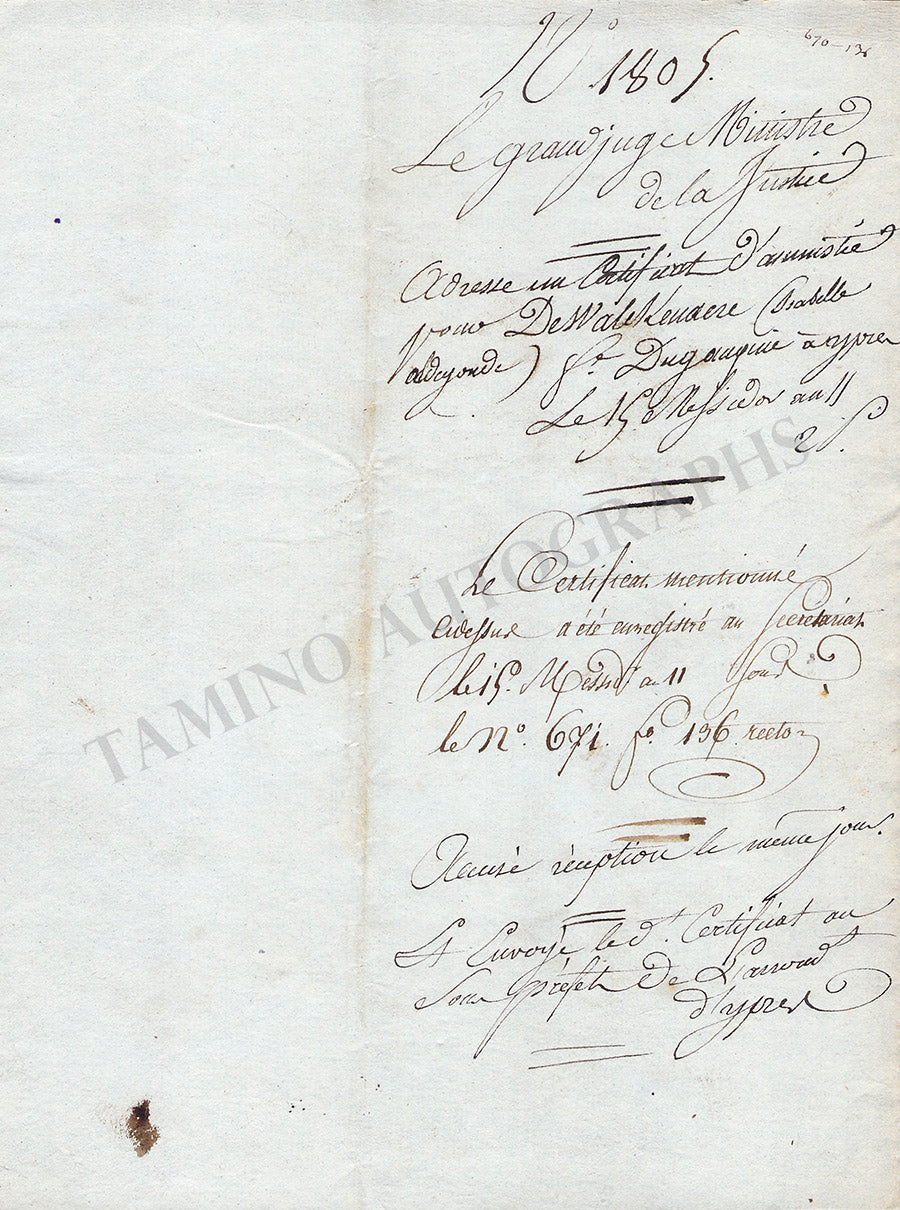 670-136
N° 1805.
Le grand juge Ministre
de la Justice
Adresse un Certificat d'amnistie
pour DeWalekenaere (Isabelle
aldegonde) fe. à ypres
Le 15 Messidor an 11
Le Certificat mentionné
cidessus a été enregistré au Secretariat
le 15. Messid.r an 11 sous
le n°. 671. f°. 136 recto
Accusé réception le même jour.
Et Envoyé le d.t Certificat au
Sous préfet de L'arrond.t
d'ypres
TAMINO AUTOGRAPHS